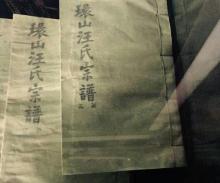 環山汪氏宗譜
環山汪氏宗譜